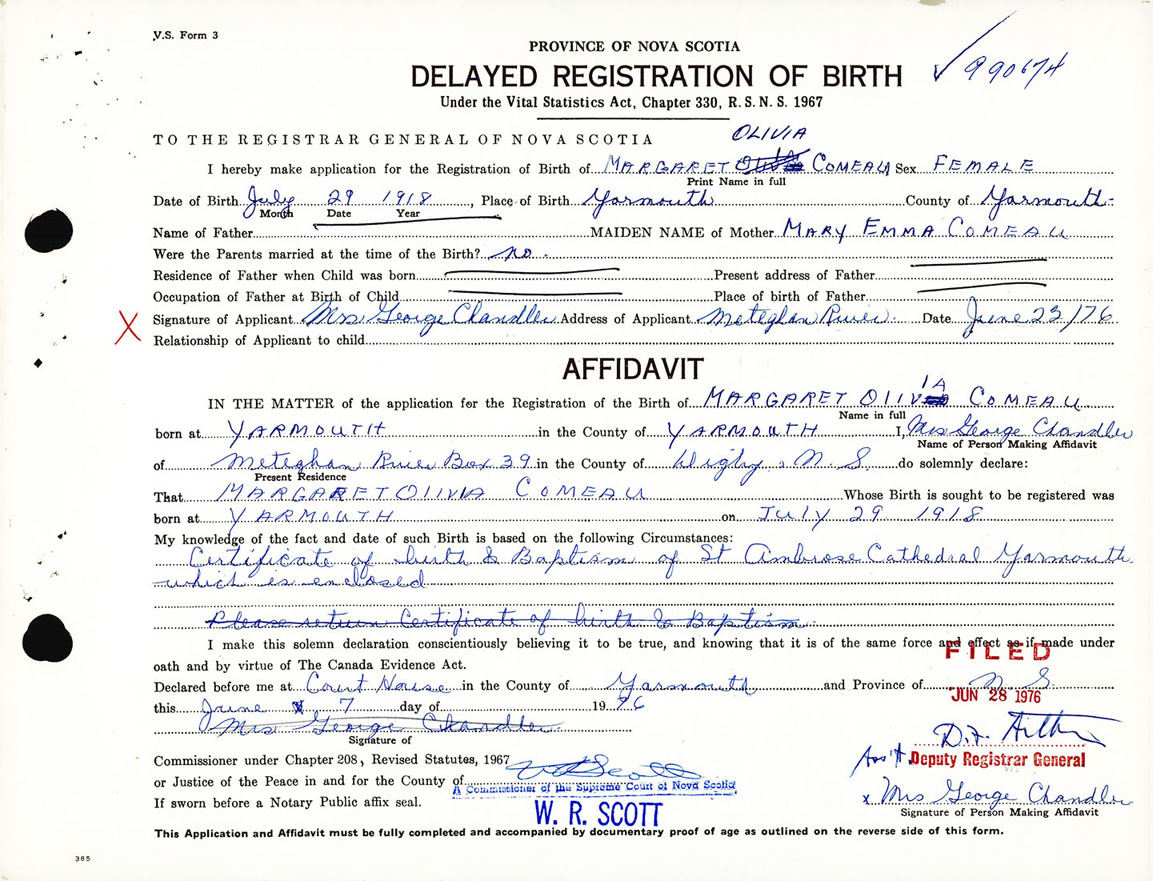 V.S. Form 3
PROVINCE OF NOVA SCOTIA
DELAYED REGISTRATION OF BIRTH ✓ 990674
Under the Vital Statistics Act, Chapter 330, R.S.N.S. 1967
TO THE REGISTRAR GENERAL OF NOVA SCOTIA OLIVIA
I hereby make application for the Registration of Birth of MARGARET COMEAU Sex FEMALE
Print Name in full
Date of Birth July 29 1918, Place of Birth Yarmouth County of Yarmouth
Month Date Year
Name of Father MAIDEN NAME of Mother MARY EMMA COMEAU
Were the Parents married at the time of the Birth? no.
Residence of Father when Child was born Present address of Father
Occupation of Father at Birth of Child Place of birth of Father
X Signature of Applicant Mrs George Chandler Address of Applicant Meteghan River. Date June 23/76
Relationship of Applicant to child
AFFIDAVIT
IA
IN THE MATTER of the application for the Registration of the Birth of MARGARET OLIV COMEAU
Name in full
born at YARMOUTH in the County of YARMOUTH I, Mrs George Chandler
Name of Person Making Affidavit
of Meteghan River Box 39 in the County of Digby, N.S. do solemnly declare:
Present Residence
That MARGARET OLIVIA COMEAU Whose Birth is sought to be registered was
born at YARMOUTH on JULY 29 1918
My knowledge of the fact and date of such Birth is based on the following Circumstances:
Certificate of birth & Baptism of St Ambrose Cathedral Yarmouth
which is enclosed
Please return Certificate of birth & Baptism
I make this solemn declaration conscientiously believing it to be true, and knowing that it is of the same force and effect as if made under
FILED
oath and by virtue of The Canada Evidence Act.
Declared before me at Court House in the County of Yarmouth and Province of N.S.
JUN 28 1976
this June 7 day of 1976
Mrs George Chandler
Signature of
Commissioner under Chapter 208, Revised Statutes, 1967
Ass't Deputy Registrar General
or Justice of the Peace in and for the County of
A Commissioner of the Supreme Court of Nova Scotia
x Mrs George Chandler
If sworn before a Notary Public affix seal.
W. R. SCOTT
Signature of Person Making Affidavit
This Application and Affidavit must be fully completed and accompanied by documentary proof of age as outlined on the reverse side of this form.
385